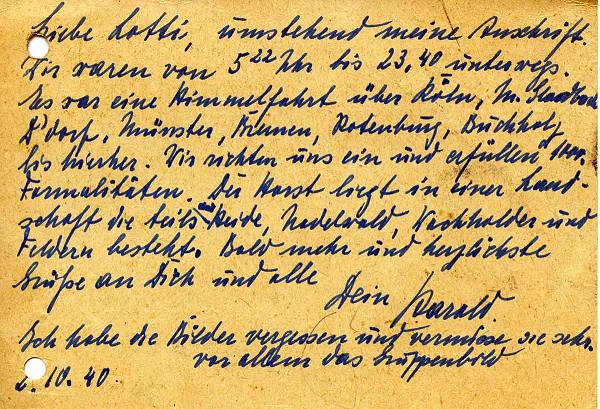 Liebe Lotti, umstehend meine Anschrift.
Wir waren von 5²² Uhr bis 23,40 unterwegs.
Es war eine Himmelfahrt über Köln, M. Gladbach
D'dorf, Münster, Bremen, Rotenburg, Buchholz
bis hierher. Wir richten uns ein und erfüllen
Formalitäten. Der Horst liegt in einer Land-
schaft die teils aus Heide, Nadelwald, Wachholder und
Feldern besteht. Bald mehr und herzlichste
Grüße an Dich und alle
Dein Harald
Ich habe die Bilder vergessen und vermisse sie sehr.
vor allem das Gruppenbild
2.10.40